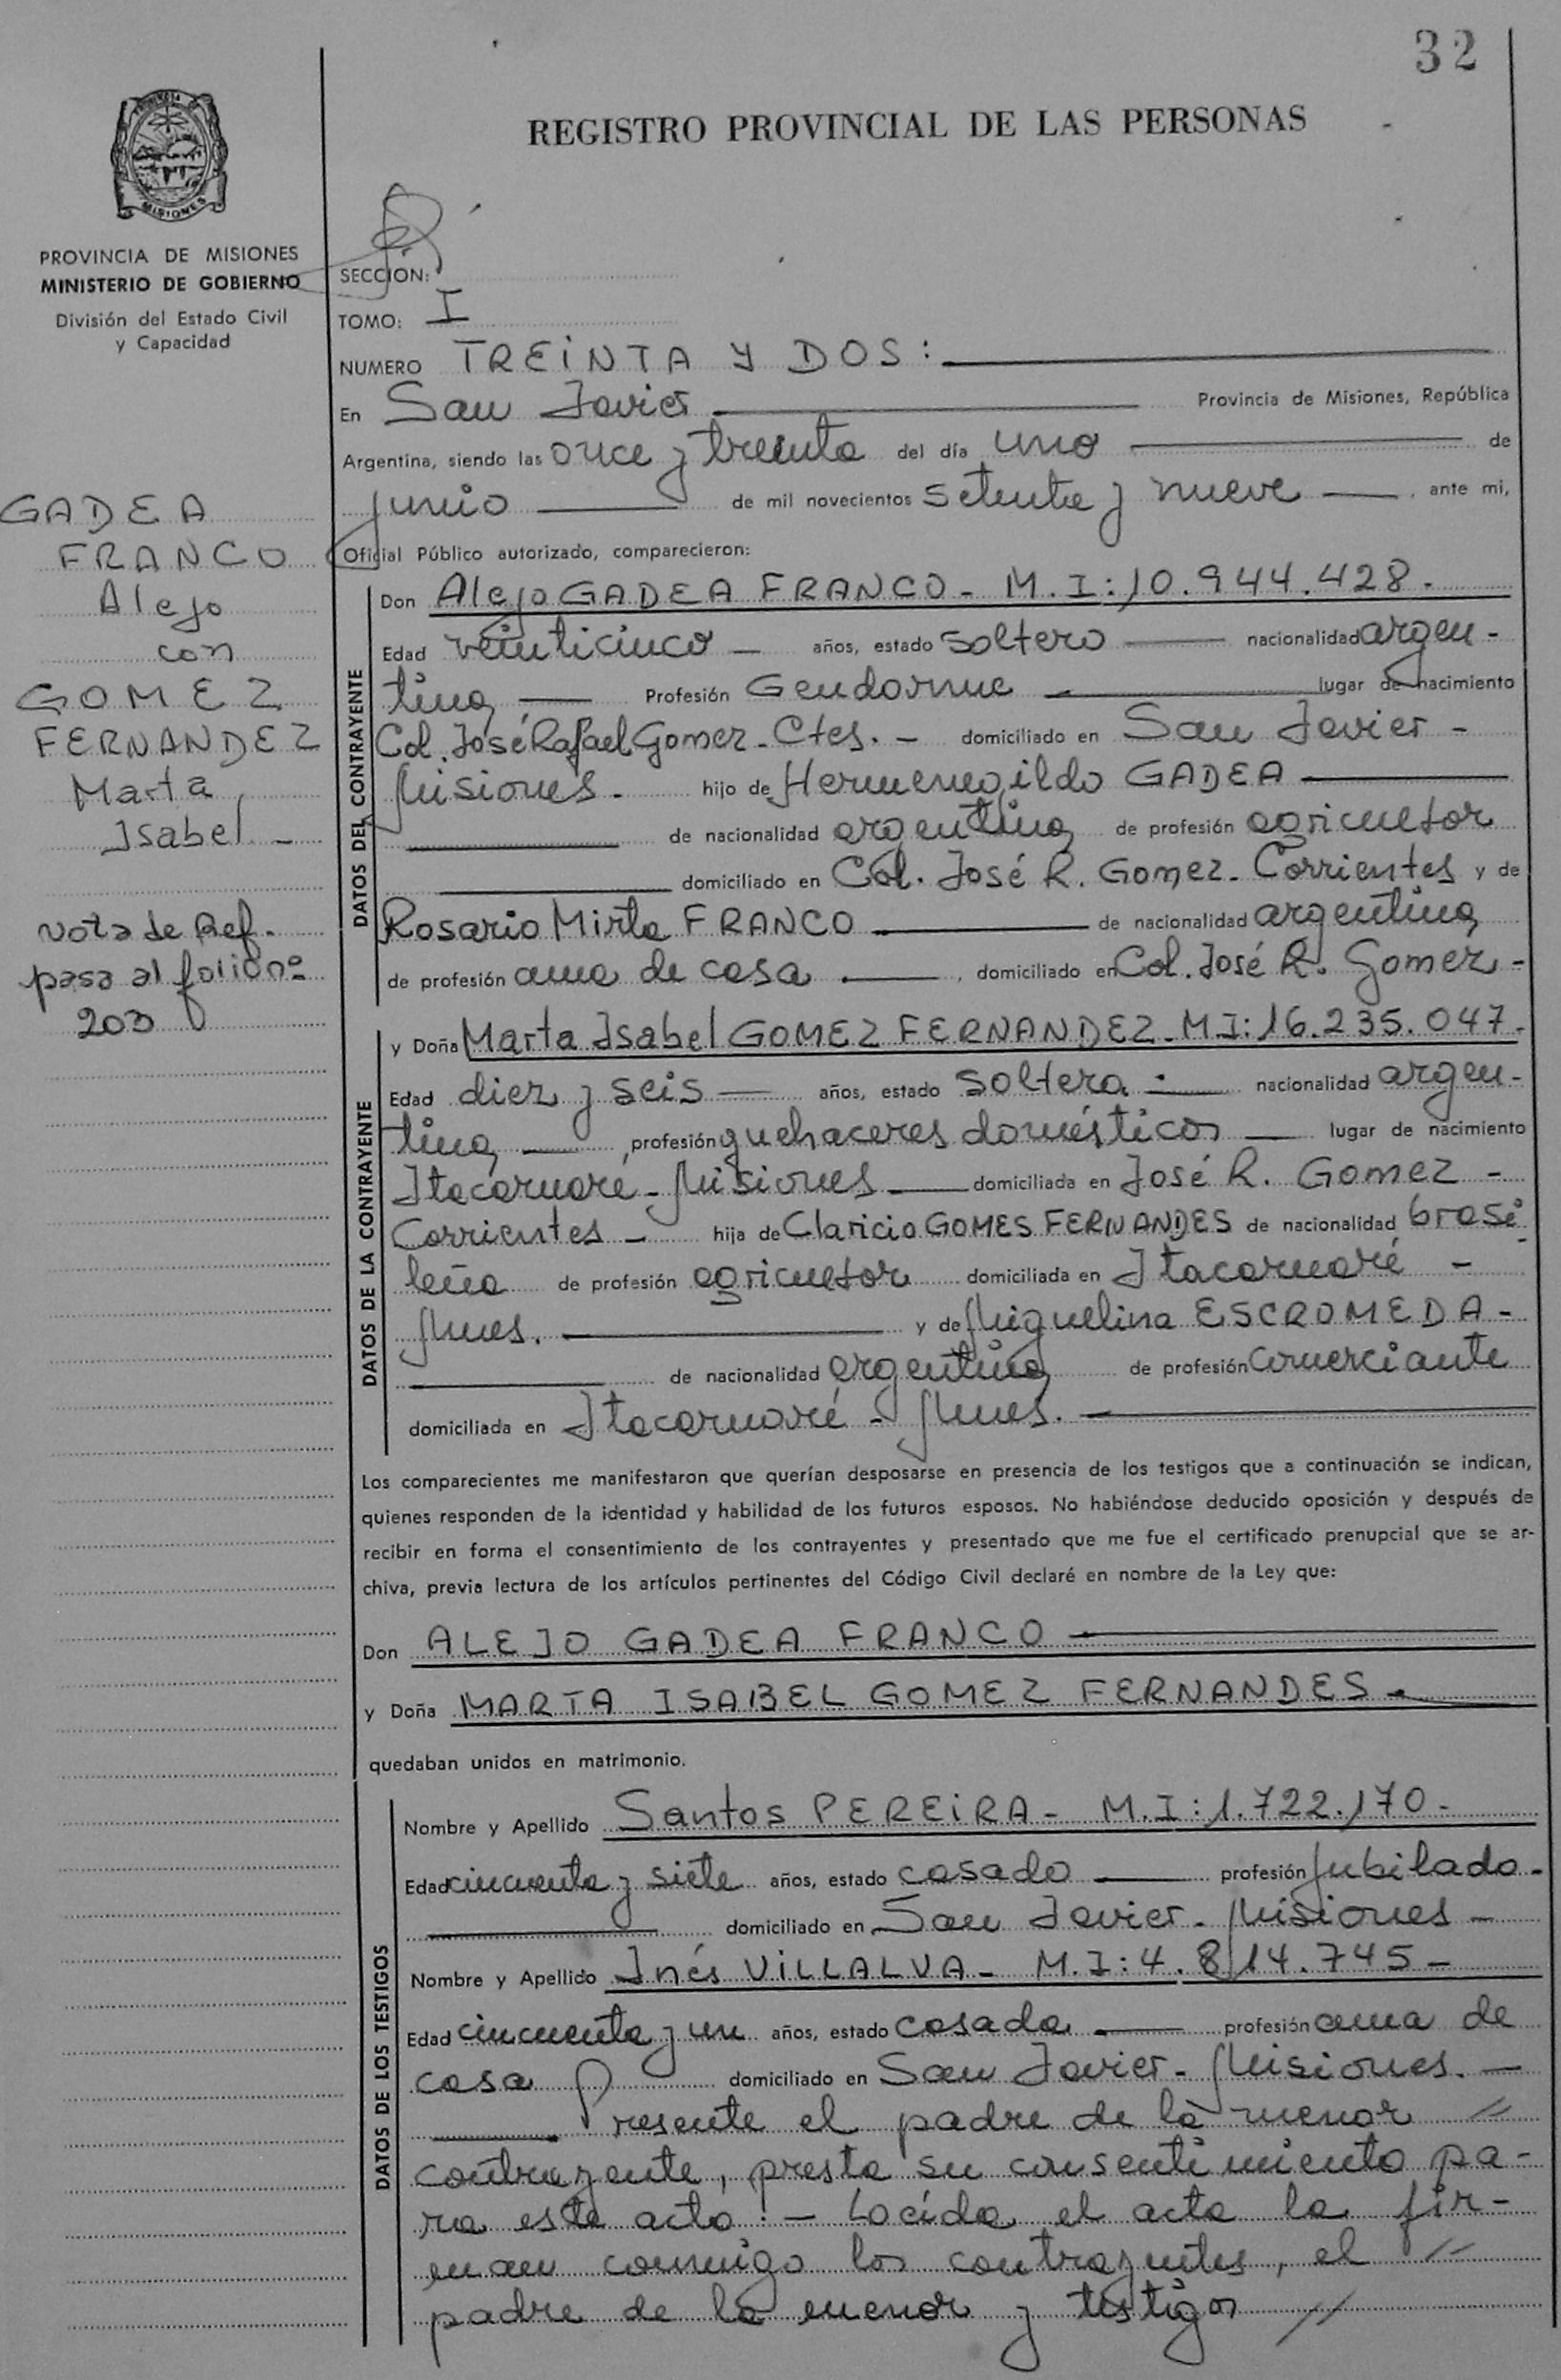 32
REGISTRO PROVINCIAL DE LAS PERSONAS
MISIONES
PROVINCIA DE MISIONES
MINISTERIO DE GOBIERNO
División del Estado Civil
y Capacidad
SECCION:
TOMO: I
NUMERO TREINTA Y DOS:
En San Javier Provincia de Misiones, República
Argentina, siendo las once y treinta del día uno de
junio de mil novecientos setenta y nueve, ante mi,
Oficial Público autorizado, comparecieron:
GADEA
FRANCO
Alejo
con
GOMEZ
FERNANDEZ
Marta
Isabel -
Nota de Ref.
pasa al folio nº
203
DATOS DEL CONTRAYENTE
Don Alejo GADEA FRANCO - M.I: 10.944.428.
Edad veinticinco - años, estado soltero nacionalidad argen-
tina Profesión Gendarme lugar de nacimiento
Col. José Rafael Gomez - Ctes. - domiciliado en San Javier -
Misiones. hijo de Hermenegildo GADEA
de nacionalidad argentina de profesión agricultor
domiciliado en Col. José R. Gomez - Corrientes y de
Rosario Mirta FRANCO de nacionalidad argentina
de profesión ama de casa, domiciliado en Col. José R. Gomez -
DATOS DE LA CONTRAYENTE
y Doña Marta Isabel GOMEZ FERNANDEZ - M.I: 16.235.047.
Edad diez y seis años, estado soltera nacionalidad argen-
tina, profesión quehaceres domésticos lugar de nacimiento
Itacaruaré - Misiones domiciliada en José R. Gomez -
Corrientes - hija de Claricio GOMES FERNANDES de nacionalidad brasi-
leña de profesión agricultor domiciliada en Itacaruaré -
Mnes. y de Miguelina ESCROMEDA -
de nacionalidad argentina de profesión comerciante
domiciliada en Itacaruaré - Mnes.
Los comparecientes me manifestaron que querían desposarse en presencia de los testigos que a continuación se indican,
quienes responden de la identidad y habilidad de los futuros esposos. No habiéndose deducido oposición y después de
recibir en forma el consentimiento de los contrayentes y presentado que me fue el certificado prenupcial que se ar-
chiva, previa lectura de los artículos pertinentes del Código Civil declaré en nombre de la Ley que:
Don ALEJO GADEA FRANCO
y Doña MARTA ISABEL GOMEZ FERNANDES
quedaban unidos en matrimonio.
DATOS DE LOS TESTIGOS
Nombre y Apellido Santos PEREIRA - M.I: 1.722.170.
Edad cincuenta y siete años, estado casado profesión Jubilado -
domiciliado en San Javier - Misiones -
Nombre y Apellido Inés VILLALVA - M.I: 4.814.745 -
Edad cincuenta y un años, estado casada profesión ama de
casa domiciliado en San Javier - Misiones. -
Presente el padre de la menor //
contrayente, presta su consentimiento pa-
ra este acto. - Leída el acta la fir-
man conmigo los contrayentes, el //
padre de la menor y testigos //